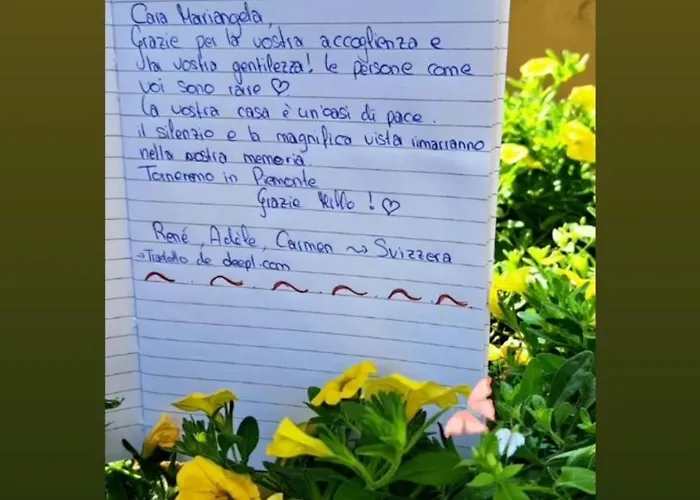 Cara Mariangela,
Grazie per la vostra accoglienza e
la vostra gentilezza! le persone come
voi sono rare ♡
La vostra casa è un'oasi di pace.
il silenzio e la magnifica vista rimarranno
nella nostra memoria.
Torneremo in Piemonte
Grazie mille ! ♡
René, Adèle, Carmen ~> Svizzera
→ Tradotto de deepl.com